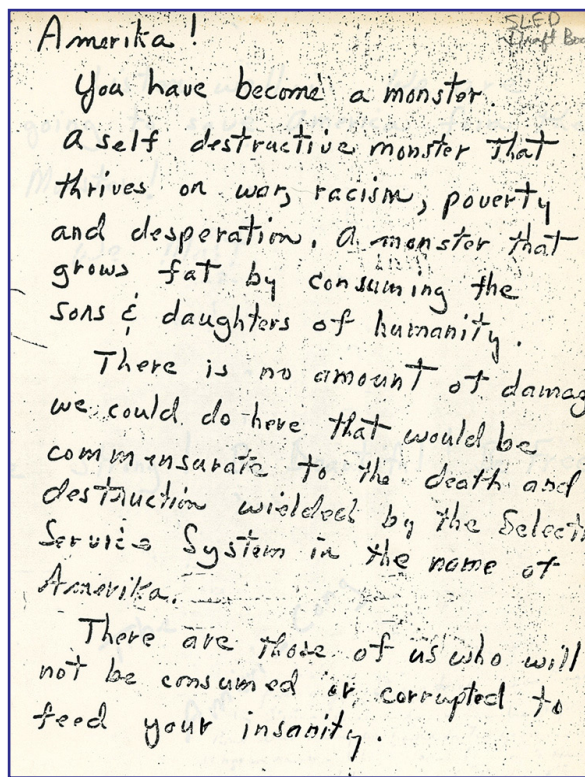 SLED
Draft Boa
Amerika!
You have become a monster.
a self destructive monster that
thrives on war, racism, poverty
and desperation. A monster that
grows fat by consuming the
sons & daughters of humanity.
There is no amount of damag
we could do here that would be
commensurate to the death and
destruction wielded by the Selecti
Service System in the name of
Amerika.
There are those of us who will
not be consumed or corrupted to
feed your insanity.